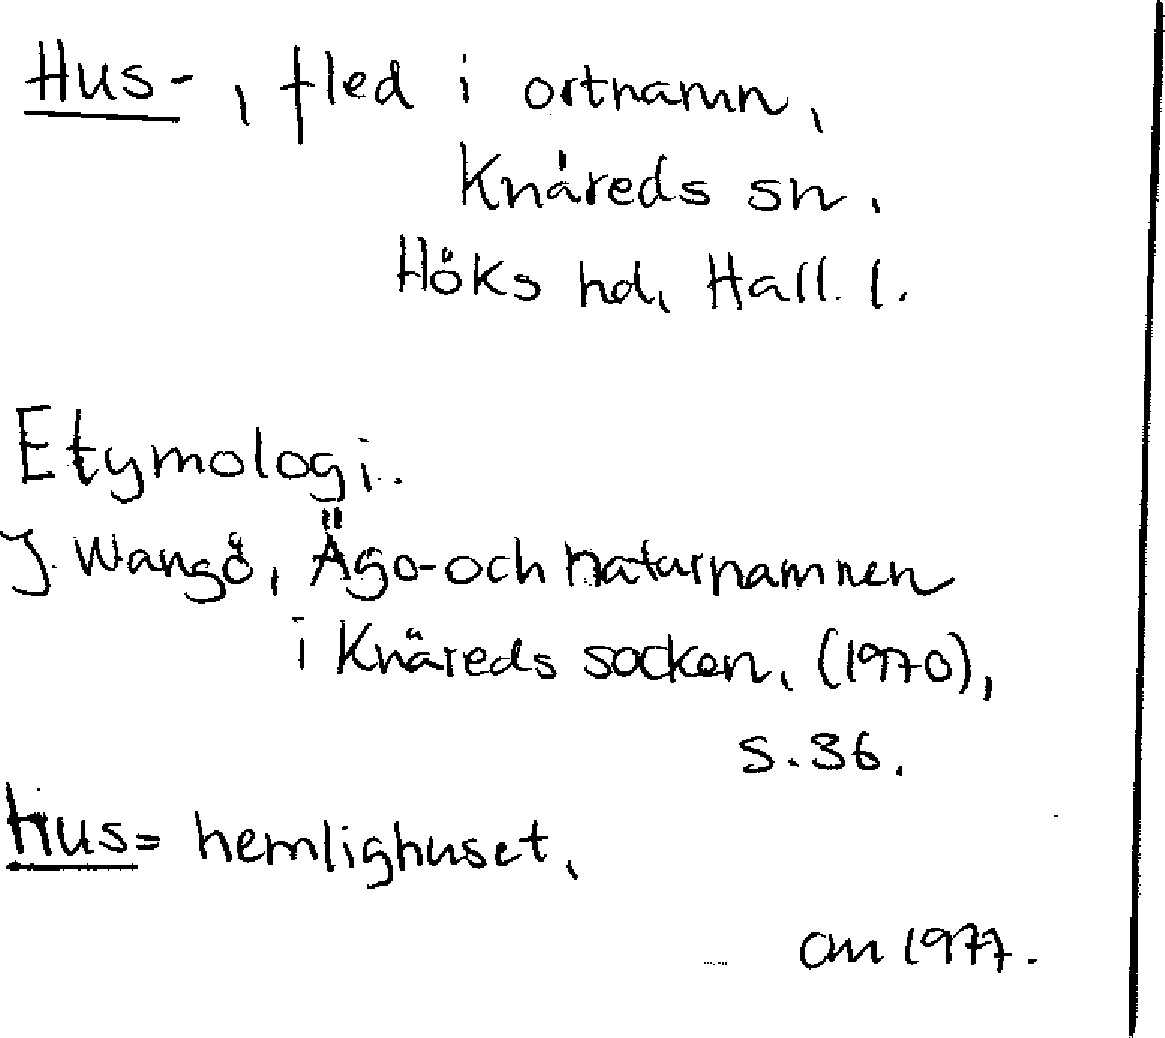 Hus-, fled i ortnamn,
Knäreds sn,
Höks hd, Hall. l.
Etymologi.
J. Wangö, Ägo- och naturnamnen
i Knäreds socken, (1970),
s. 36.
hus = hemlighuset,
am 1977.